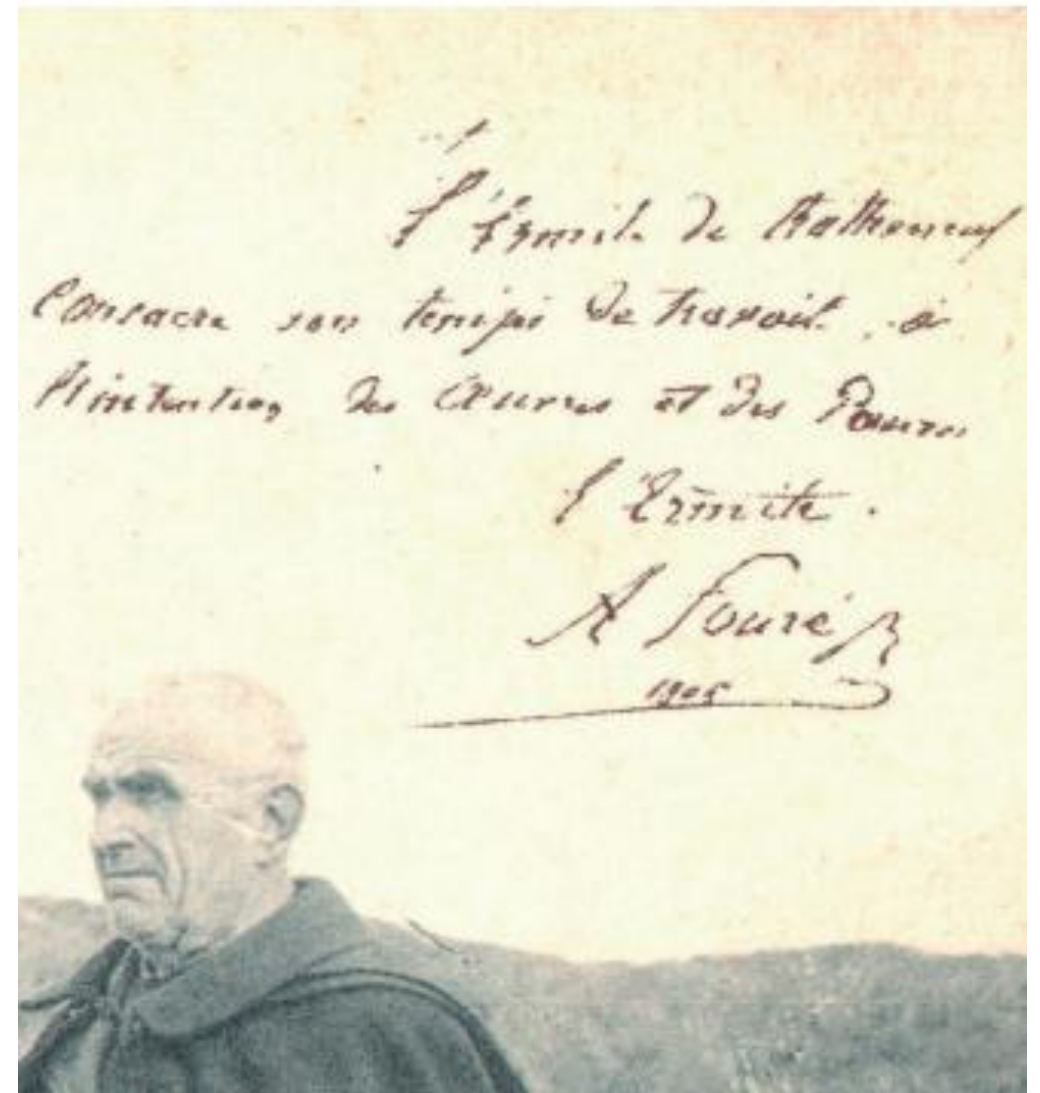 l'Ermite de Rothéneuf
Consacre son temps de travail à
l'intention des Œuvres et des Pauvres
l'Ermite.
A Fouré